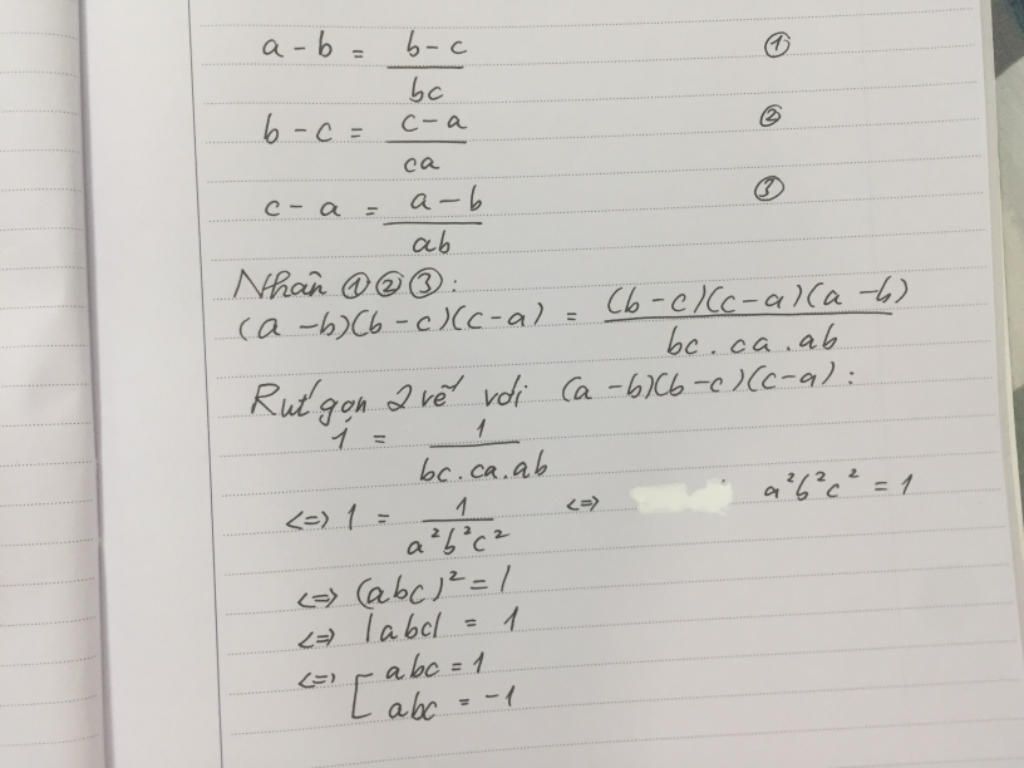 a - b = (b - c)/bc ①
b - c = (c - a)/ca ②
c - a = (a - b)/ab ③
Nhân ① ② ③ :
(a - b)(b - c)(c - a) = (b - c)(c - a)(a - b)/bc . ca . ab
Rút gọn 2 vế với (a - b)(b - c)(c - a) :
1 = 1/bc . ca . ab
<=> 1 = 1/a²b²c² <=> a²b²c² = 1
<=> (abc)² = 1
<=> |abc| = 1
<=> [ abc = 1
abc = -1